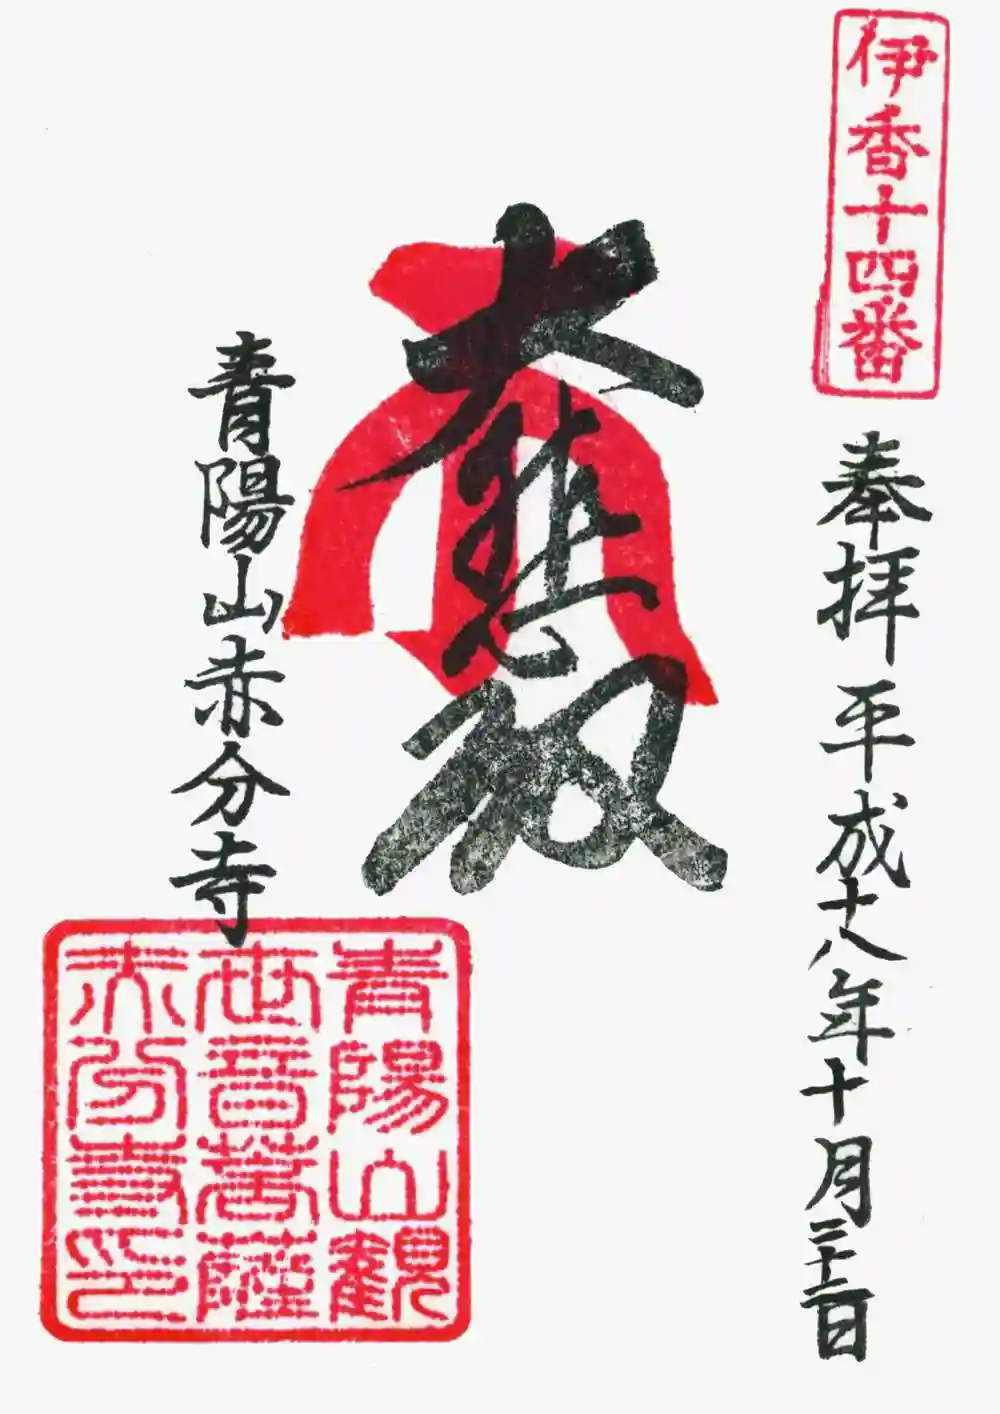 伊香十四番
奉拝 平成十八年十月三十一日
大悲殿
青陽山赤分寺
青陽山觀
世音菩薩
赤分寺印